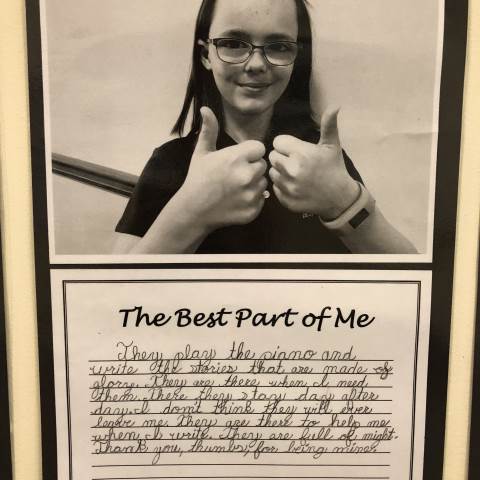 The Best Part of Me
They play the piano and
write the stories that are made of
glory. They are there when I need
them. There they stay day after
day. I don't think they will ever
leave me. They are there to help me
when I write. They are full of might.
Thank you, thumbs, for being mine.